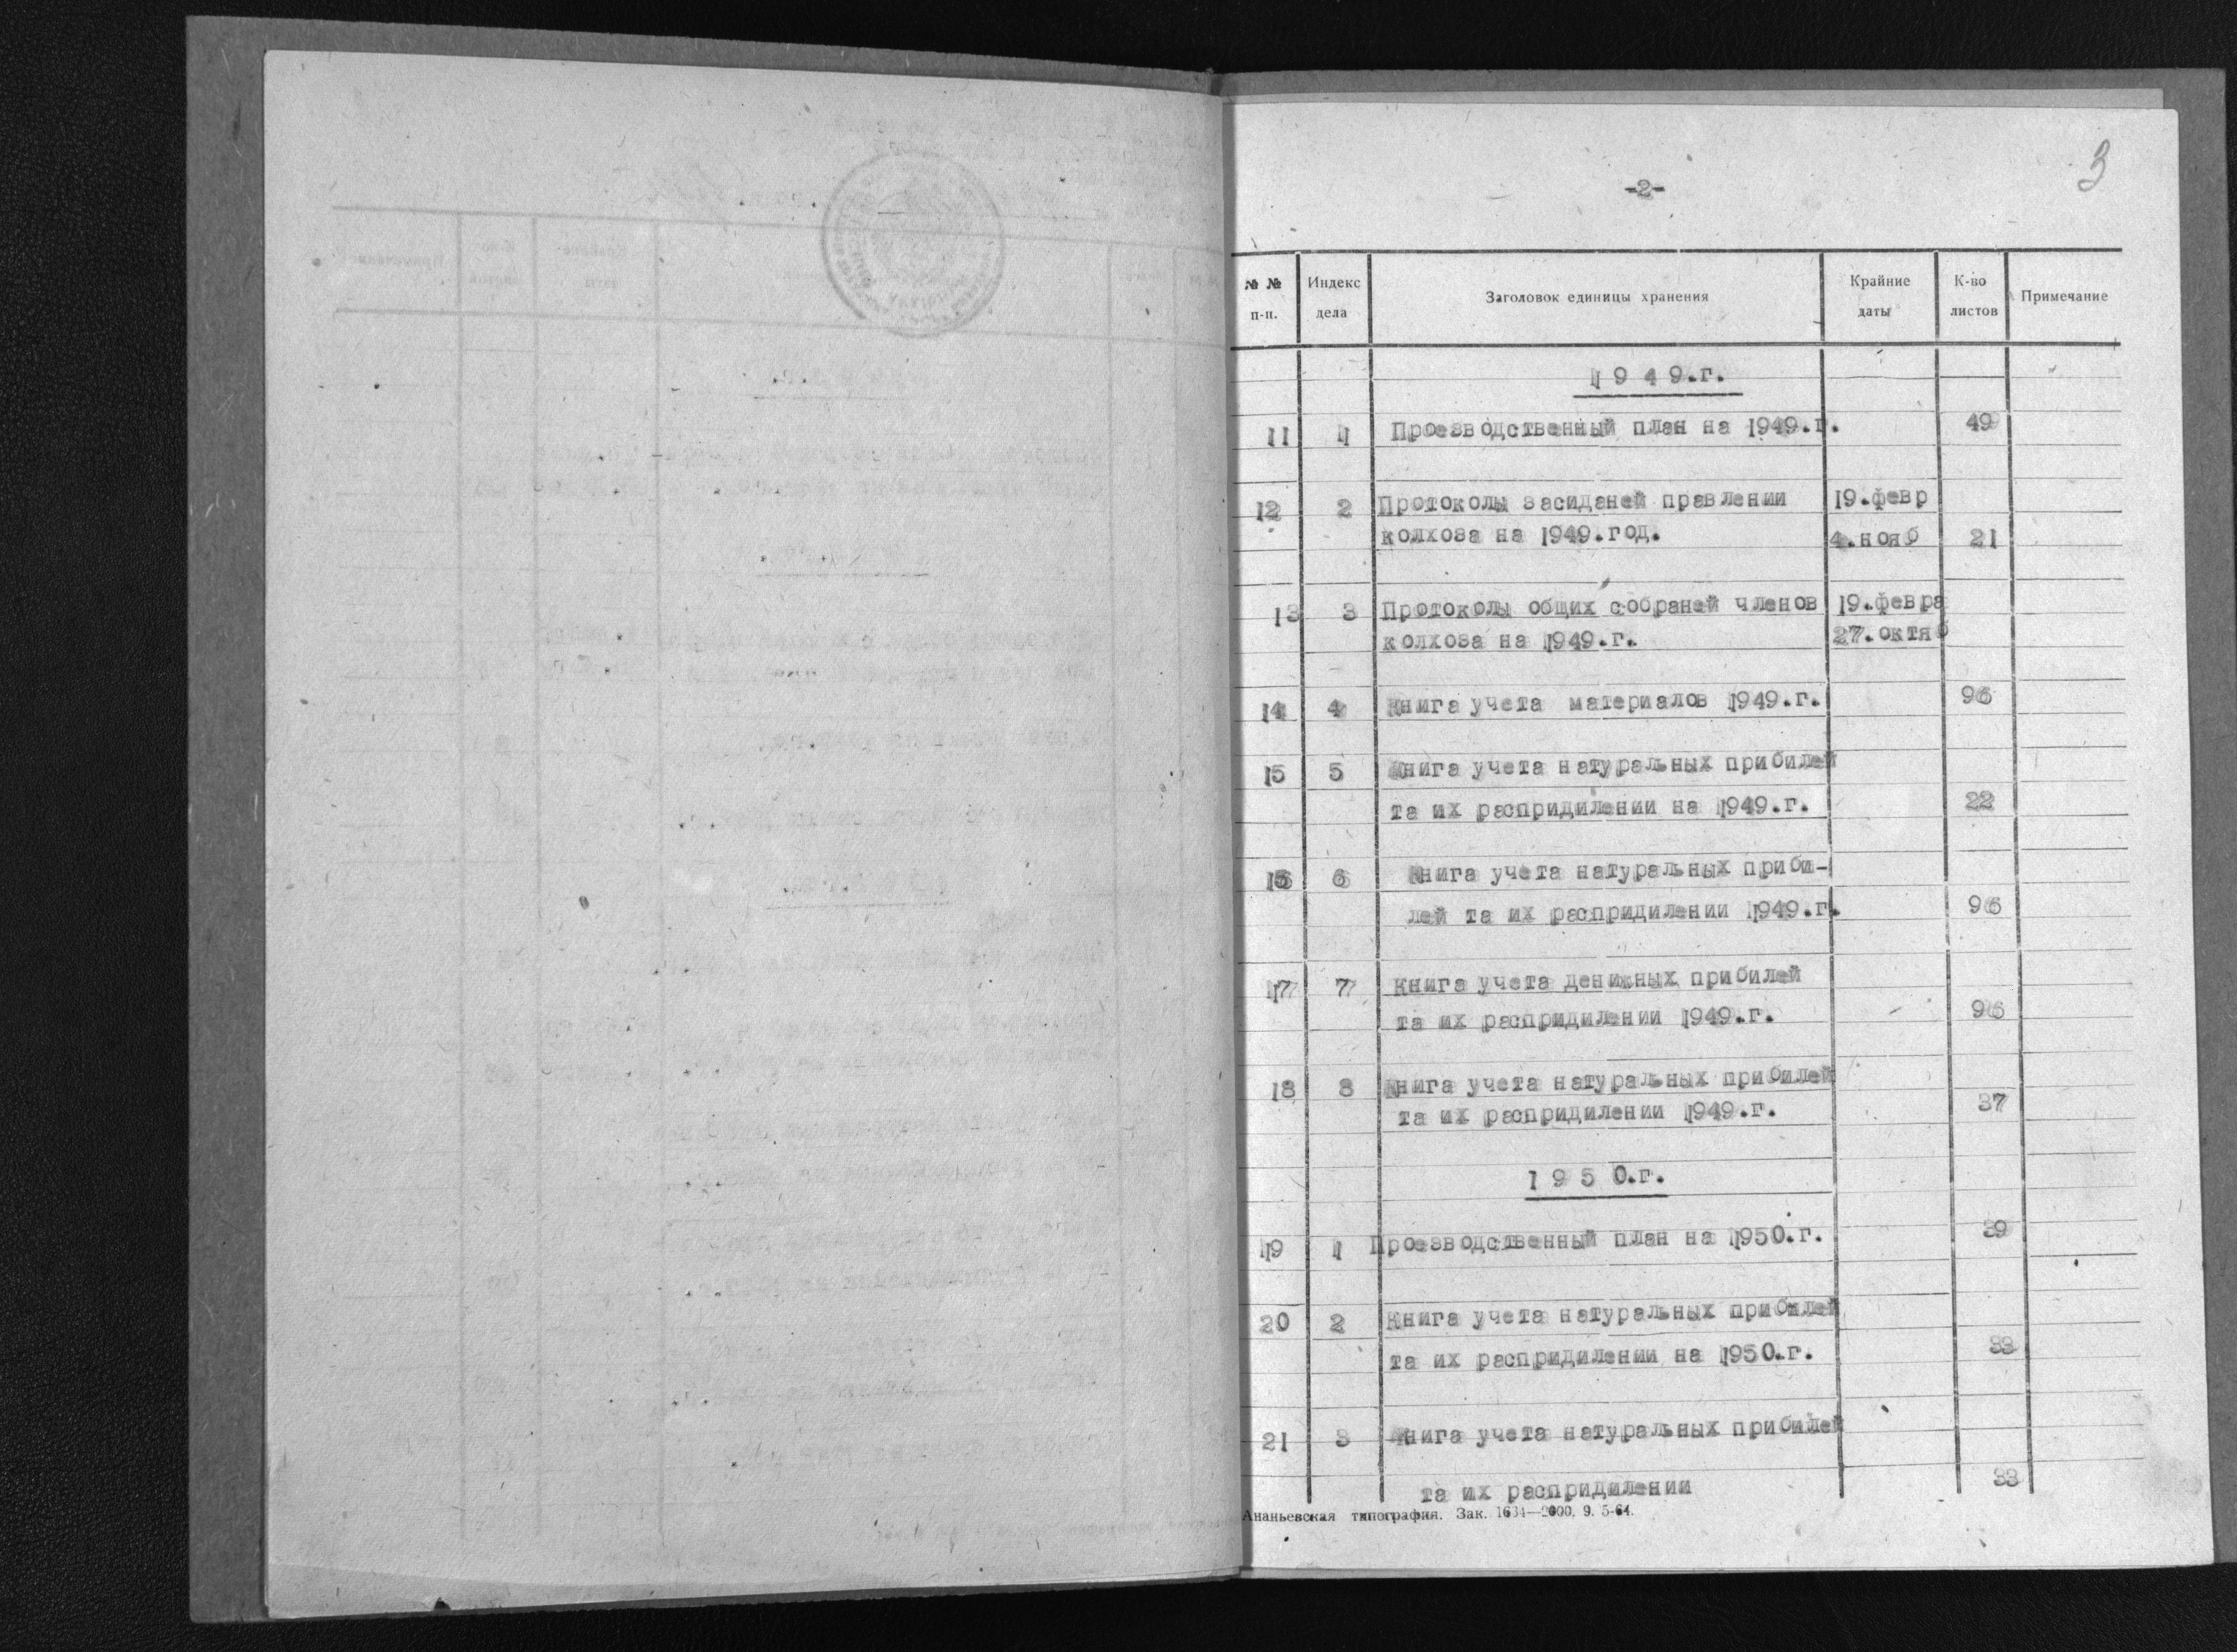 3
-2-
№ № п-п. Индекс дела Заголовок единицы хранения Крайние даты К-во листов Примечание
1949.г.
11 1 Проезводственный план на 1949.г. 49
12 2 Протоколы засиданей правлении 19.февр
колхоза на 1949.год. 4.нояб 21
13 3 Протоколы общих собраней членов 19.февра
колхоза на 1949.г. 27.октяб
14 4 Книга учета материалов 1949.г. 96
15 5 Книга учета натуральных прибилей
та их распридилении на 1949.г. 22
16 6 Книга учета натуральных приби-
лей та их распридилении 1949.г. 96
17 7 Книга учета денижных прибилей
та их распридилении 1949.г. 96
18 8 Книга учета натуральных прибилей
та их распридилении 1949.г. 37
1950.г.
19 1 Проезводственный план на 1950.г. 39
20 2 Книга учета натуральных прибилей
та их распридилении на 1950.г. 33
21 3 Книга учета натуральных прибилей
та их распридилении 33
Ананьевская типография. Зак. 1634—2000. 9. 5-64.